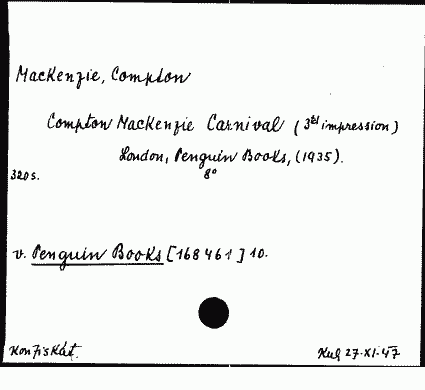 MacKenzie, Compton
Compton MacKenzie Carnival (3rd impression)
London, Penguin Books, (1935).
320 s. 8°
v. Penguin Books [168461] 10.
Konfiskát. 27-XI-47